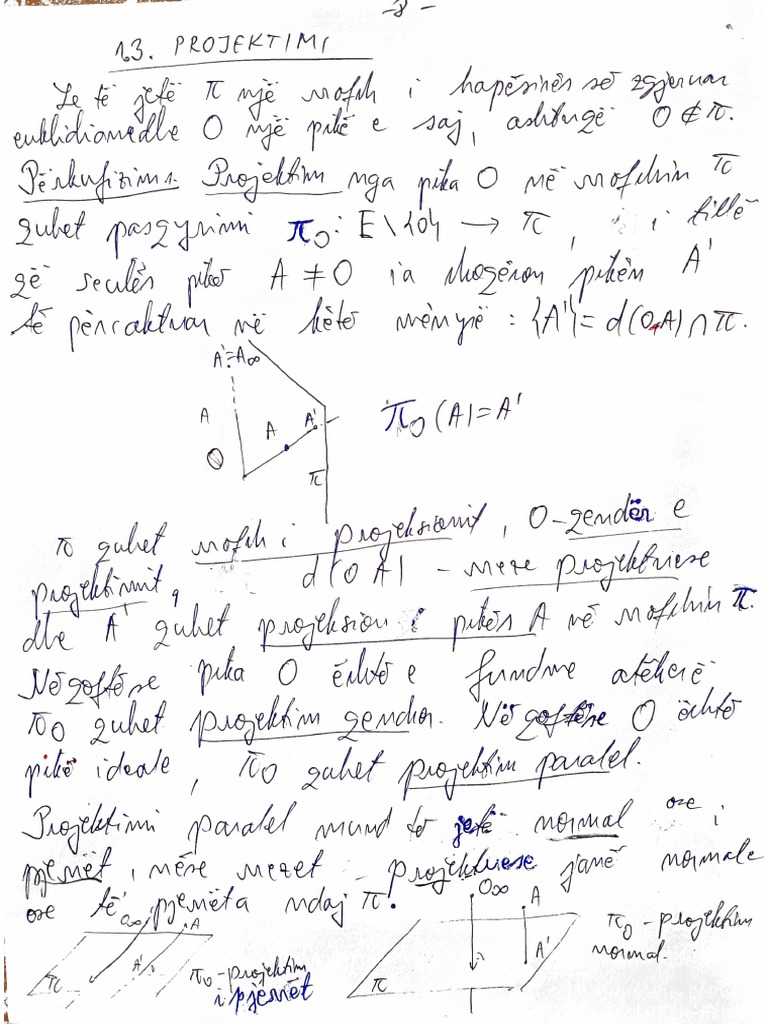 -8-
13. PROJEKTIMI
Le të jetë π një rrafsh i hapësinës së zgjeruar
euklidiane dhe O një pikë e saj, ashtuqë O∉π.
Përkufizim 1. Projektim nga pika O në rrafshin π
quhet pasqyrimi π₀: E\{O} → π, i tillë
që secilës pikë A ≠ O ia shoqëron pikën A'
të përcaktuar në këtë mënyrë: {A'} = d(O,A) ∩ π.
A'=A∞
A
A
A'
O
π
π₀(A) = A'
π quhet rrafsh i projeksionit, O-qendër e
projektimit, d(OA) - rreze projektuese
dhe A' quhet projeksion i pikës A në rrafshin π.
Nëqoftëse pika O është e fundme atëherë
π₀ quhet projektim qendror. Nëqoftëse O është
pikë ideale, π₀ quhet projektim paralel.
Projektimi paralel mund të jetë normal ose i
pjerrët, nëse rrezet projektuese janë normale
ose të pjerrëta ndaj π.
O∞
A
A'
π
π₀-projektim
i pjerrët
O∞
A
A'
π
π₀-projektim
normal.